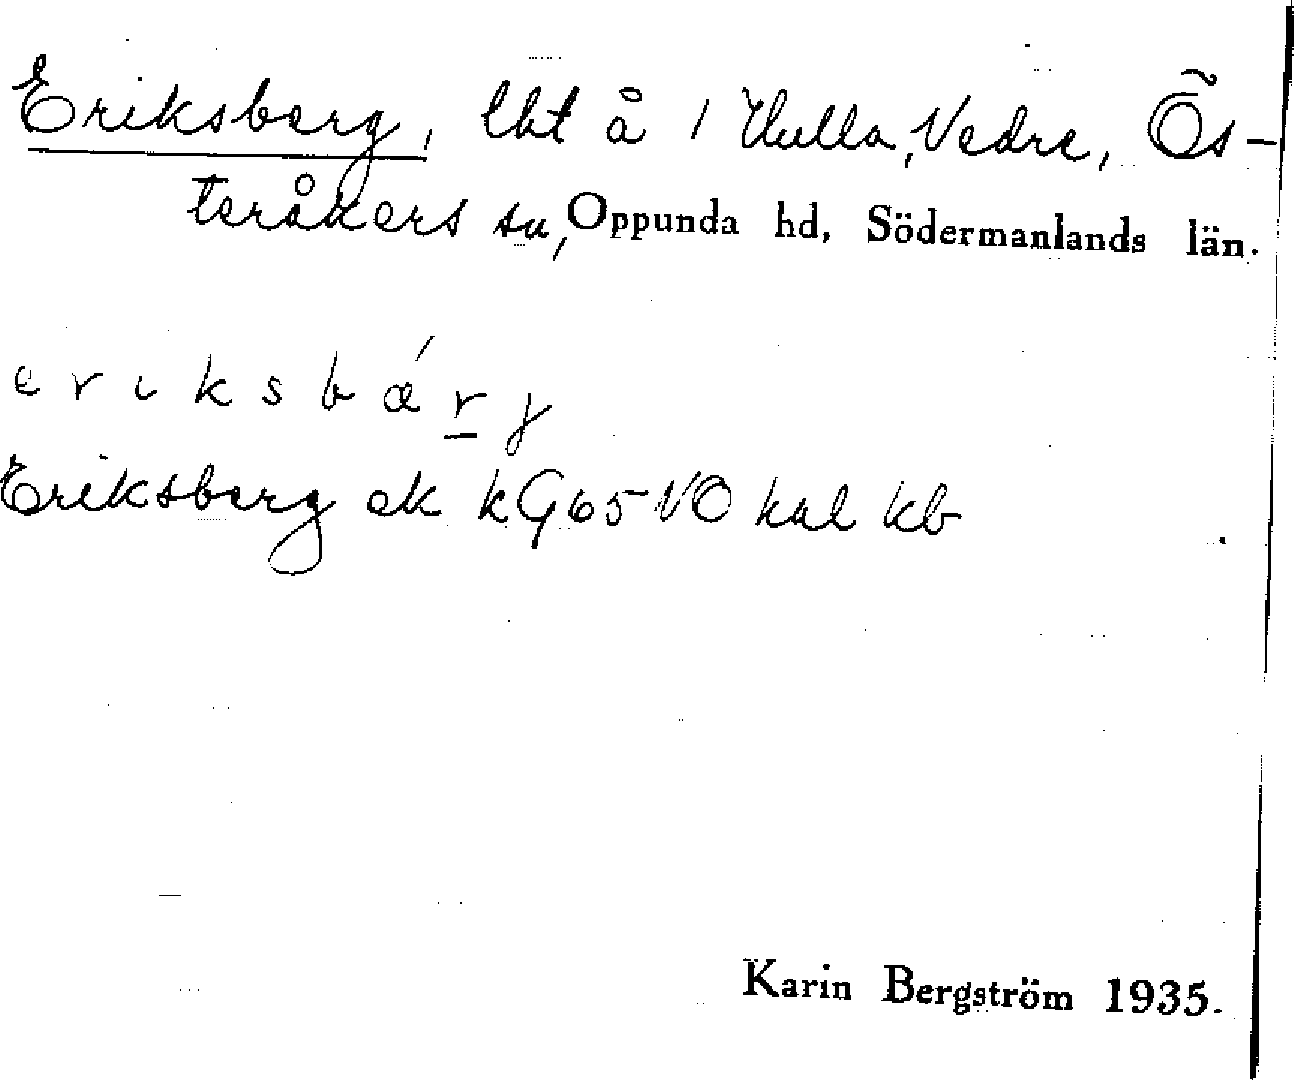 Eriksberg, lht å 1 Hulla, Vedre, Ös-
teråkers sn, Oppunda hd, Södermanlands län.
eriksbærj
Eriksberg ek kG65 NO hal kb
Karin Bergström 1935.